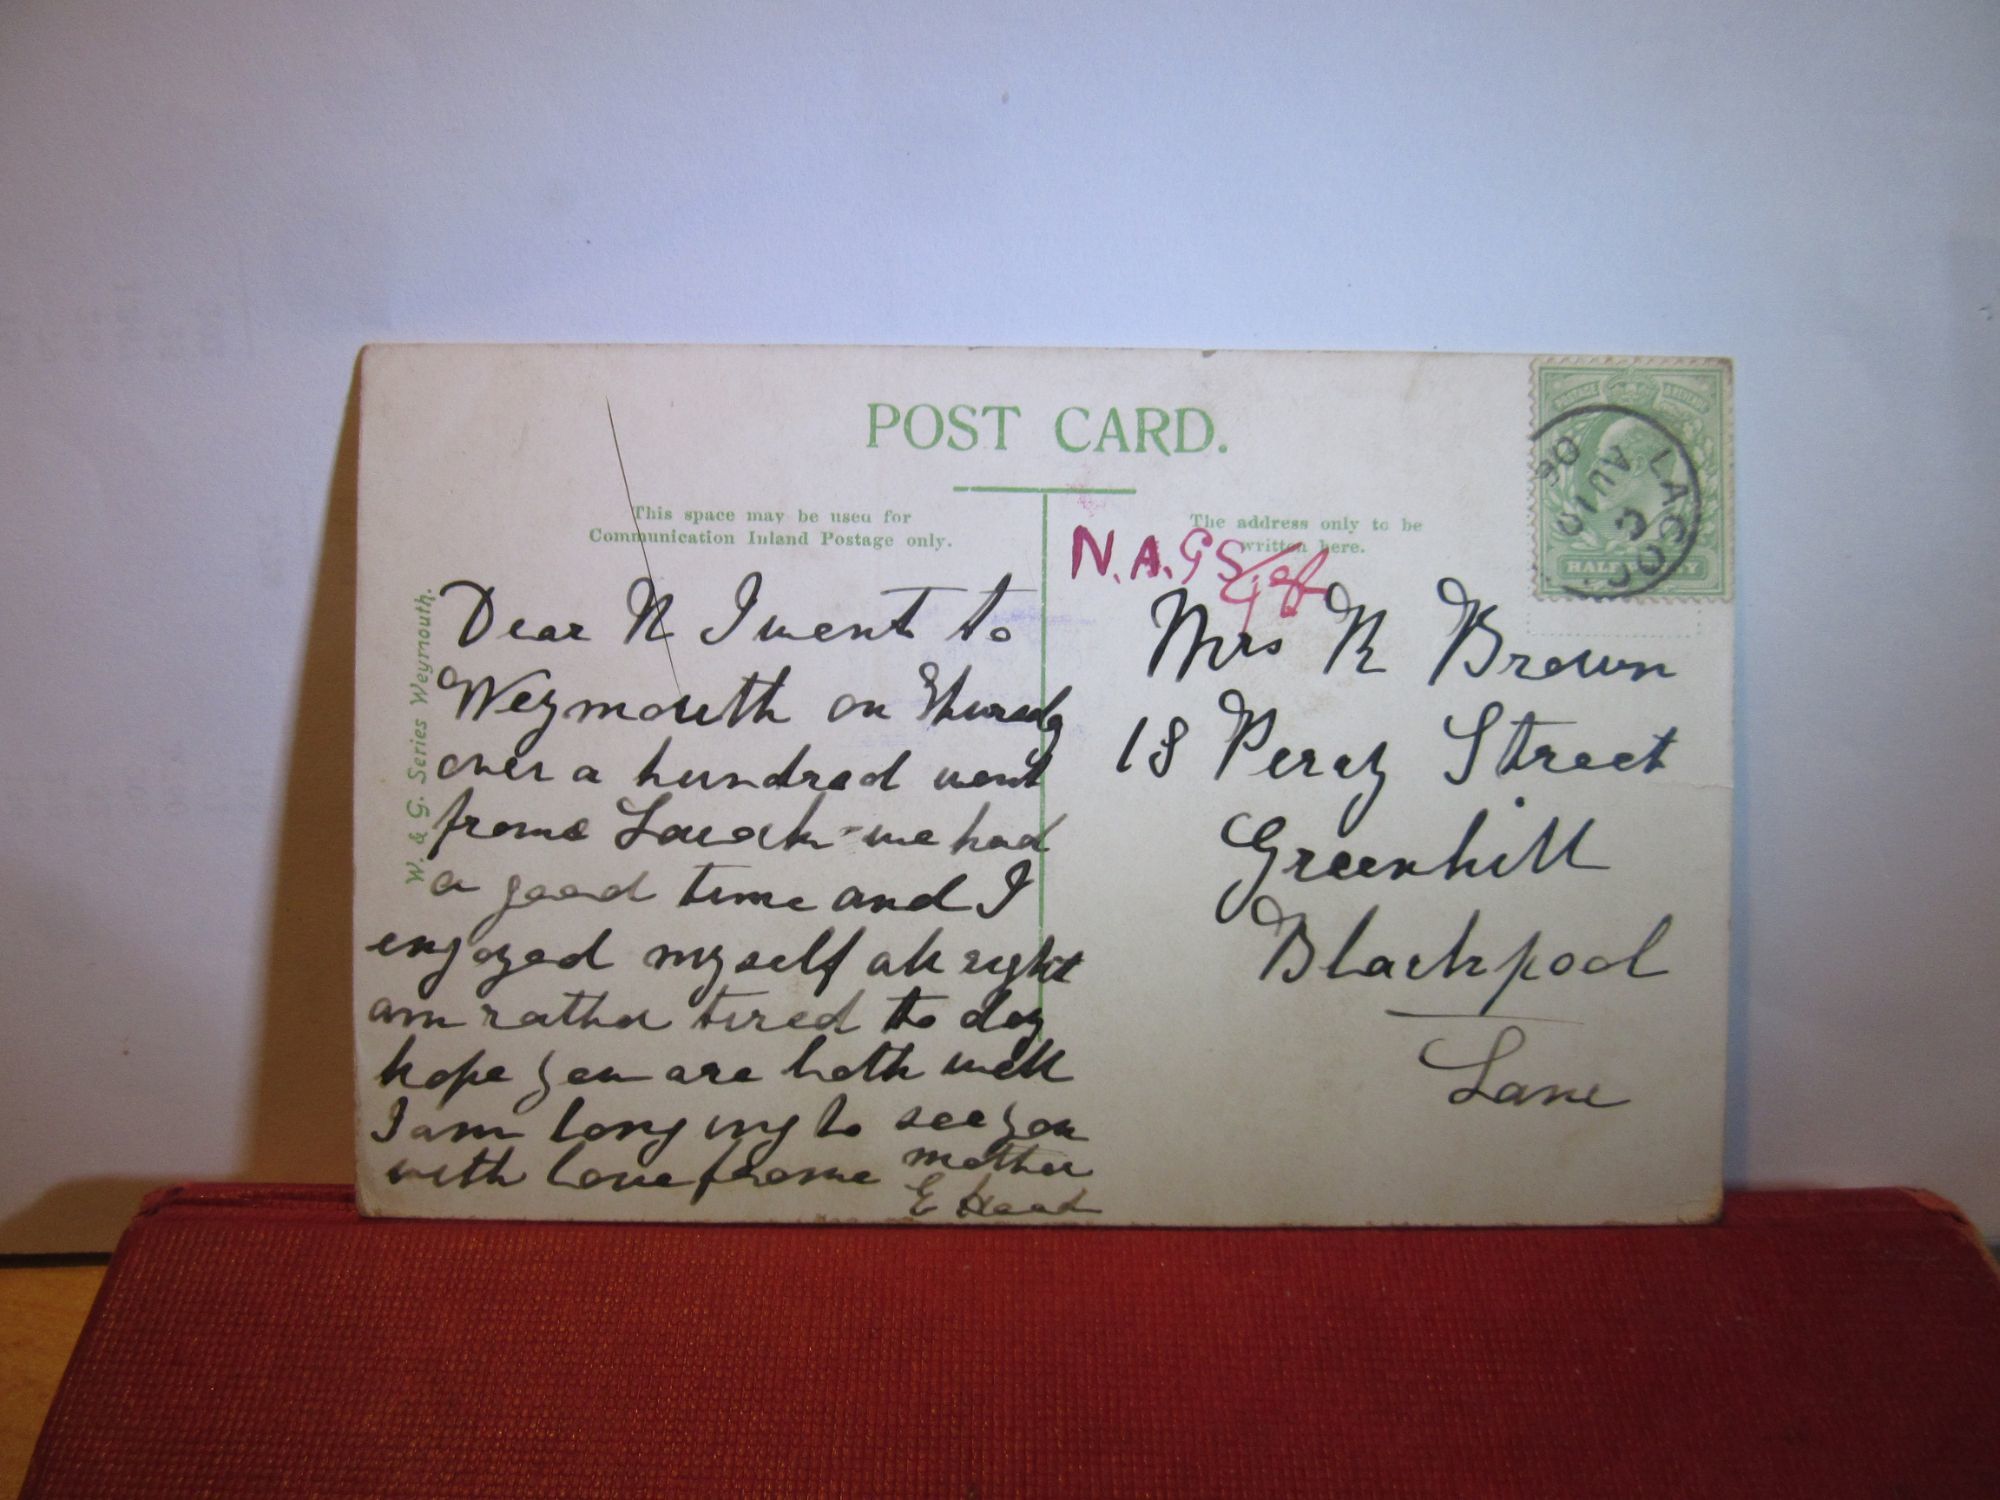 POST CARD.
This space may be used for
Communication Inland Postage only.
The address only to be
written here.
W. & G. Series Weymouth.
N.A.G S
Dear N I went to
Weymouth on Thursdy
over a hundred went
frome Lacock we had
a good time and I
enjoyed myself all right
am rather tired to day
hope you are both well
I am longing to see you
with love frome mother
E
Mrs N Brown
18 Percy Street
Greenhill
Blackpool
Lane
LACOCK
C
AU 10
06
HALFPENNY
POSTAGE